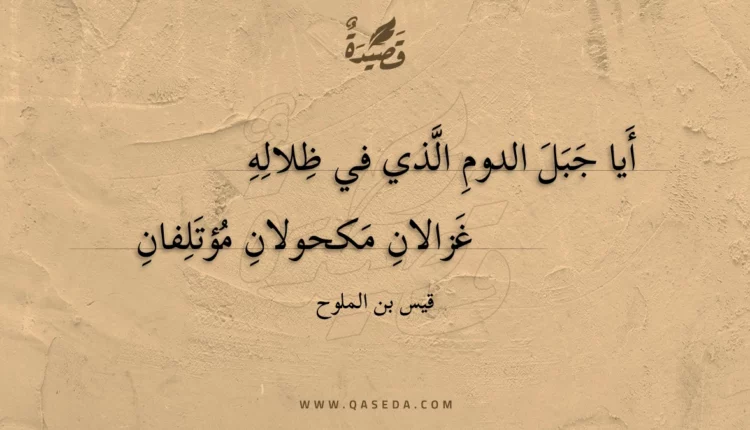 قَصِيدَةٌ
أَيا جَبَلَ الدومِ الَّذي في ظِلالِهِ
غَزالانِ مَكحولانِ مُؤتَلِفانِ
قيس بن الملوح
WWW.QASEDA.COM